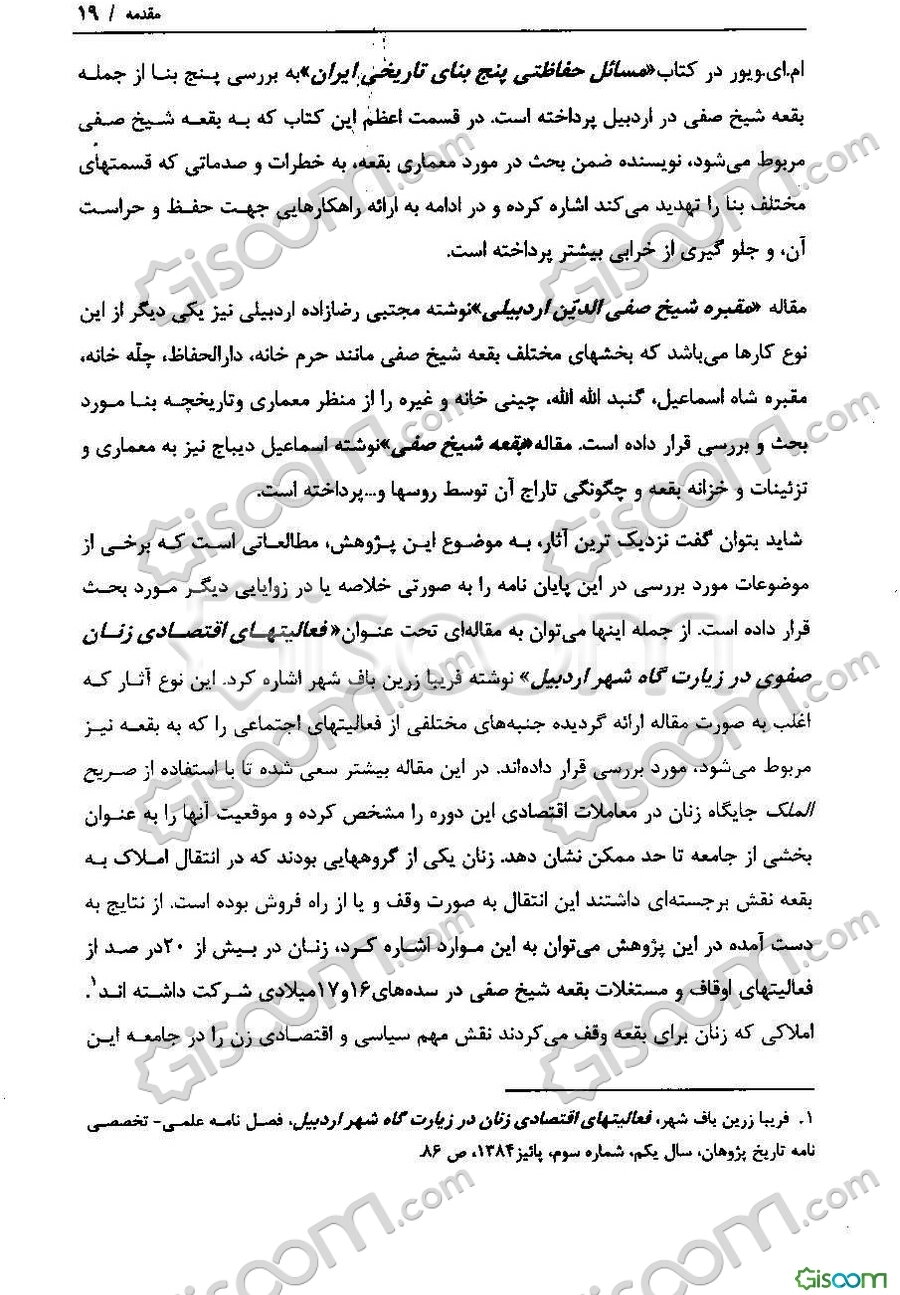 مقدمه / ۱۹
ام.ای.ویور در کتاب«مسائل حفاظتی پنج بنای تاریخی ایران»به بررسی پنج بنا از جمله
بقعه شیخ صفی در اردبیل پرداخته است. در قسمت اعظم این کتاب که به بقعه شیخ صفی
مربوط می‌شود، نویسنده ضمن بحث در مورد معماری بقعه، به خطرات و صدماتی که قسمتهای
مختلف بنا را تهدید می‌کند اشاره کرده و در ادامه به ارائه راهکارهایی جهت حفظ و حراست
آن، و جلو گیری از خرابی بیشتر پرداخته است.
مقاله «مقبره شیخ صفی الدیّن اردبیلی»نوشته مجتبی رضازاده اردبیلی نیز یکی دیگر از این
نوع کارها می‌باشد که بخشهای مختلف بقعه شیخ صفی مانند حرم خانه، دارالحفاظ، چلّه خانه،
مقبره شاه اسماعیل، گنبد الله الله، چینی خانه و غیره را از منظر معماری وتاریخچه بنا مورد
بحث و بررسی قرار داده است. مقاله«بقعه شیخ صفی»نوشته اسماعیل دیباج نیز به معماری و
تزئینات و خزانه بقعه و چگونگی تاراج آن توسط روسها و...پرداخته است.
شاید بتوان گفت نزدیک ترین آثار، به موضوع این پژوهش، مطالعاتی است که برخی از
موضوعات مورد بررسی در این پایان نامه را به صورتی خلاصه یا در زوایایی دیگر مورد بحث
قرار داده است. از جمله اینها می‌توان به مقاله‌ای تحت عنوان«فعالیتهای اقتصادی زنان
صفوی در زیارت گاه شهر اردبیل» نوشته فریبا زرین باف شهر اشاره کرد. این نوع آثار که
اغلب به صورت مقاله ارائه گردیده جنبه‌های مختلفی از فعالیتهای اجتماعی را که به بقعه نیز
مربوط می‌شود، مورد بررسی قرار داده‌اند. در این مقاله بیشتر سعی شده تا با استفاده از صریح
الملک جایگاه زنان در معاملات اقتصادی این دوره را مشخص کرده و موقعیت آنها را به عنوان
بخشی از جامعه تا حد ممکن نشان دهد. زنان یکی از گروههایی بودند که در انتقال املاک به
بقعه نقش برجسته‌ای داشتند این انتقال به صورت وقف و یا از راه فروش بوده است. از نتایج به
دست آمده در این پژوهش می‌توان به این موارد اشاره کرد، زنان در بیش از ۲۰در صد از
فعالیتهای اوقاف و مستغلات بقعه شیخ صفی در سده‌های۱۶و۱۷میلادی شرکت داشته اند۱.
املاکی که زنان برای بقعه وقف می‌کردند نقش مهم سیاسی و اقتصادی زن را در جامعه این
۱. فریبا زرین باف شهر، فعالیتهای اقتصادی زنان در زیارت گاه شهر اردبیل، فصل نامه علمی- تخصصی
نامه تاریخ پژوهان، سال یکم، شماره سوم، پائیز۱۳۸۴، ص ۸۶.
Gisoom.com
Gisoom.com
Gisoom.com
Gisoom.com
Gisoom
Gisoom.com
Gisoom.com
Gisoom.com
Gisoom.com
Gisoom.com
Gisoom.com
Gisoom